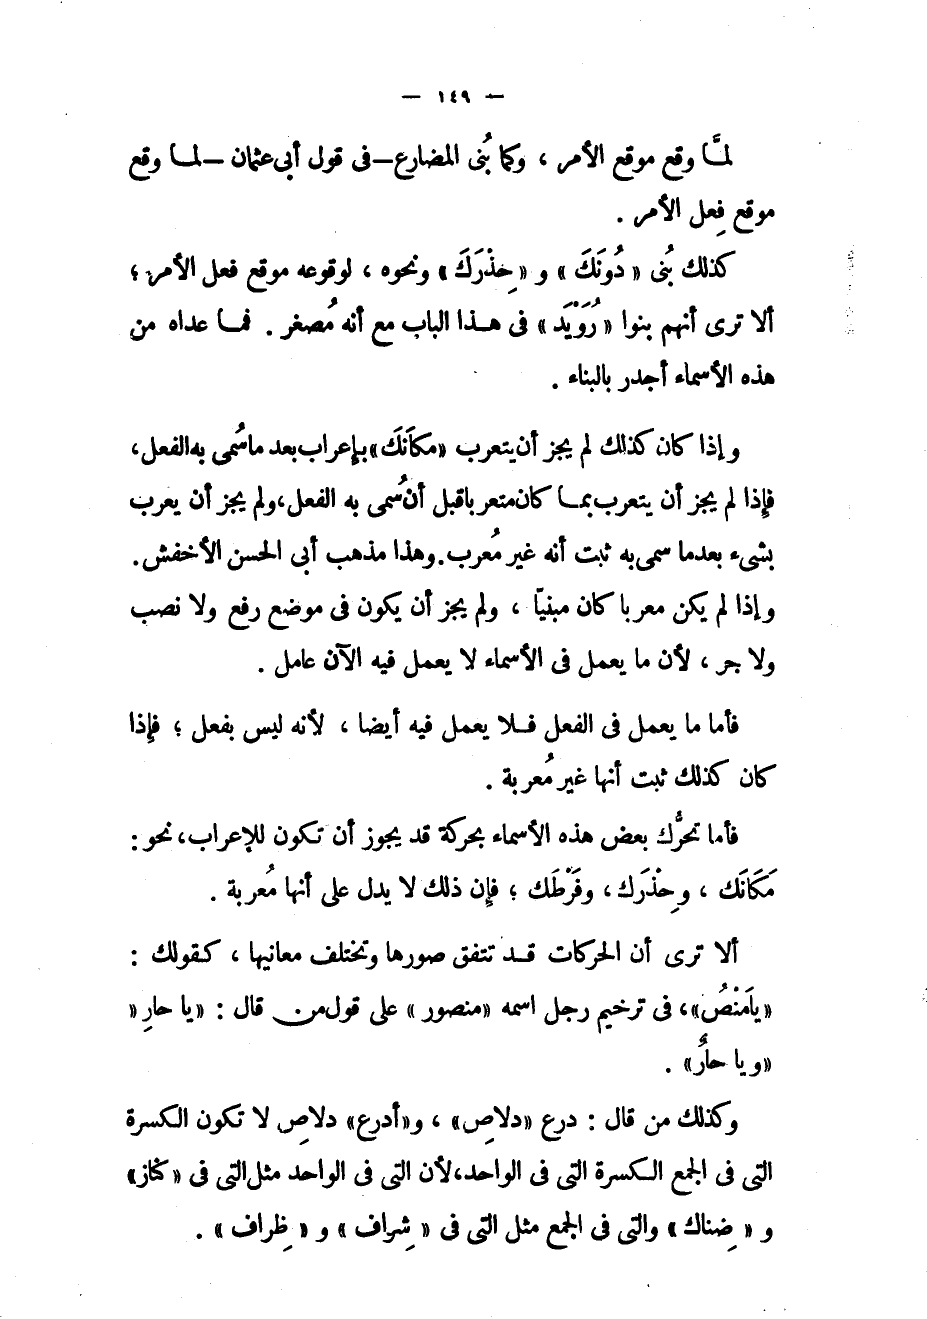 — ١٤٩ —
لمَّا وقع موقع الأمر ، وكما بُنى المضارع — فى قول أبى عثمان — لمـا وقع
موقع فِعل الأمر .
كذلك بُنى « دُونَكَ » و « حِذْرَكَ » ونحوه ، لوقوعه موقع فعل الأمر ؛
ألا ترى أنهم بنوا « رُوَيْدَ » فى هـذا الباب مع أنه مُصغر . فمـا عداه من
هذه الأسماء أجدر بالبناء .
وإذا كان كذلك لم يجز أن يتعرب «مكَانَكَ» بإعراب بعد ما سُمى به الفعل ،
فإذا لم يجز أن يتعرب بمـا كان متعربا قبل أن سُمى به الفعل ، ولم يجز أن يعرب
بشىء بعدما سمى به ثبت أنه غير مُعرب . وهذا مذهب أبى الحسن الأخفش .
وإذا لم يكن معربا كان مبنيّا ، ولم يجز أن يكون فى موضع رفع ولا نصب
ولا جر ، لأن ما يعمل فى الأسماء لا يعمل فيه الآن عامل .
فأما ما يعمل فى الفعل فـلا يعمل فيه أيضا ، لأنه ليس بفعل ؛ فإذا
كان كذلك ثبت أنها غير مُعربة .
فأما تحرُّك بعض هذه الأسماء بحركة قد يجوز أن تكون للإعراب ، نحو :
مَكَانَك ، وحِذْرَك ، وفَرْطَك ؛ فإن ذلك لا يدل على أنها مُعربة .
ألا ترى أن الحركات قـد تتفق صورها وتختلف معانيها ، كقولك :
«يامَنْصُ» ، فى ترخيم رجل اسمه «منصور» على قول من قال : «يا حارِ»
«ويا حارُ» .
وكذلك من قال : درع «دلاص» ، و«أدرع» دلاصِ لا تكون الكسرة
التى فى الجمع الكسرة التى فى الواحد ، لأن التى فى الواحد مثل التى فى «كناز»
و « ضِناك » والتى فى الجمع مثل التى فى « شِراف » و « ظِراف » .